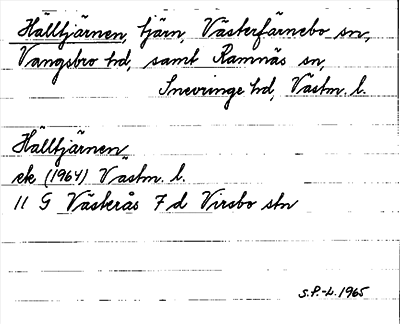 Hälltjärnen, tjärn, Västerfärnebo sn,
Vangsbro hd, samt Ramnäs sn,
Snevringe hd, Västm. l.
Hälltjärnen
ek (1964) Västm. l.
11 G Västerås 7 d Virsbo stn
S.P.-L. 1965